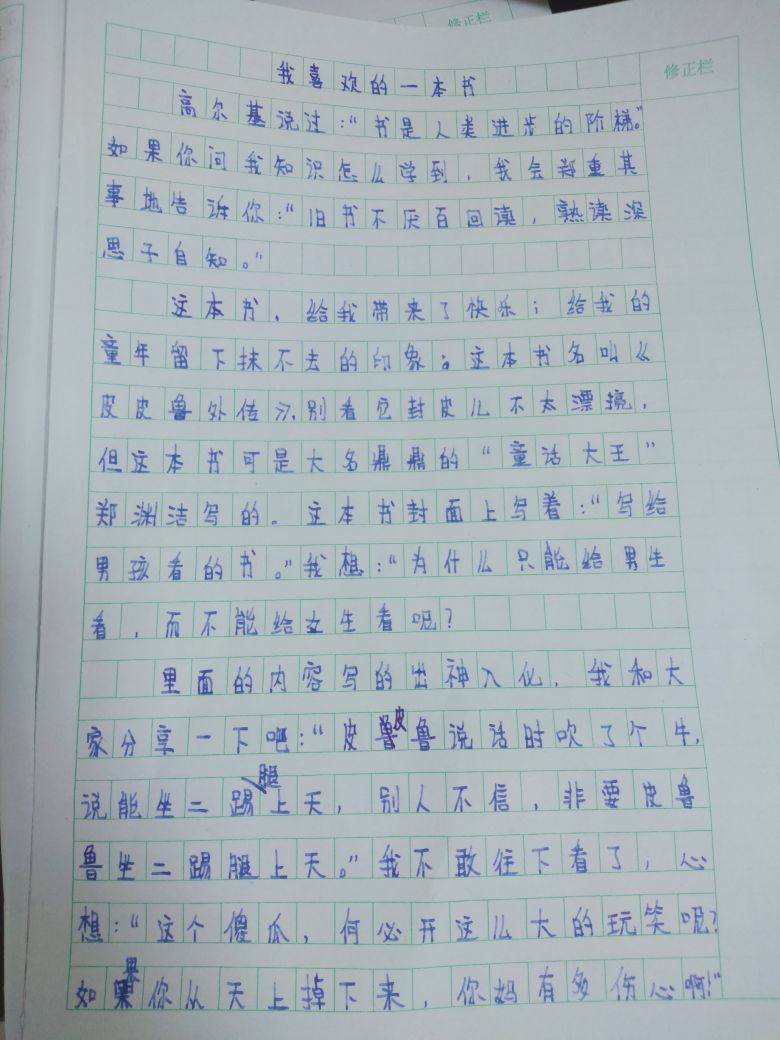 修正栏
修正栏
我喜欢的一本书
高尔基说过:“书是人类进步的阶梯。”
如果你问我知识怎么学到,我会郑重其
事地告诉你:“旧书不厌百回读,熟读深
思子自知。”
这本书,给我带来了快乐;给我的
童年留下抹不去的印象。这本书名叫《
皮皮鲁外传》,别看它封皮儿不太漂亮,
但这本书可是大名鼎鼎的“童话大王”
郑渊洁写的。这本书封面上写着:“写给
男孩看的书。”我想:“为什么只能给男生
看,而不能给女生看呢?
里面的内容写的出神入化,我和大
家分享一下吧:“皮皮鲁说话时吹了个牛,
说能坐二踢腿上天,别人不信,非要皮鲁
鲁坐二踢腿上天。”我不敢往下看了,心
想:“这个傻瓜,何必开这么大的玩笑呢?
如果你从天上掉下来,你妈有多伤心啊!”